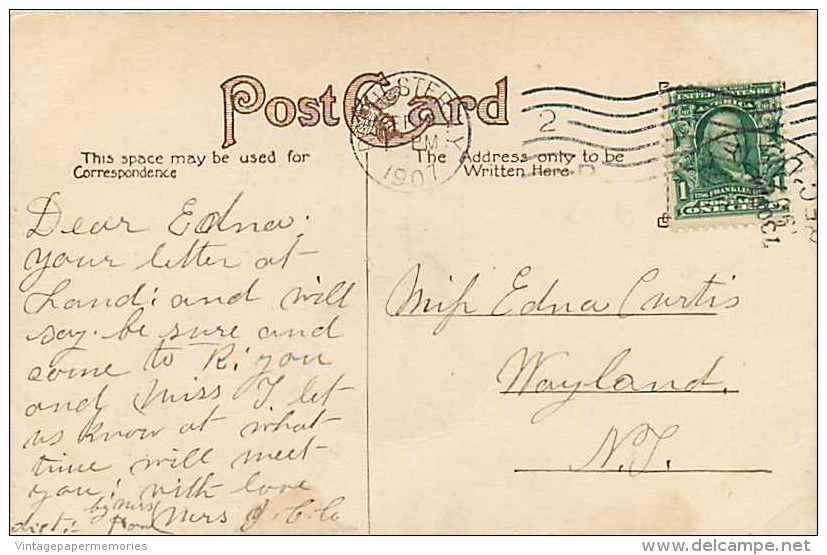 Post Card
This space may be used for
Correspondence
The Address only to be
Written Here.
1907
PM
2
UNITED STATES OF
AMERICA
FRANKLIN
1
ONE CENT
REC'D
130
Dear Edna:
your letter at
hand: and will
say. be sure and
come to R; you
and Miss I let
us know at what
time will meet
you; with love
Mrs J. C. Co
by Mrs
Miſs Edna Curtis
Wayland,
N.Y.
Vintagepapermemories
delcampe.net